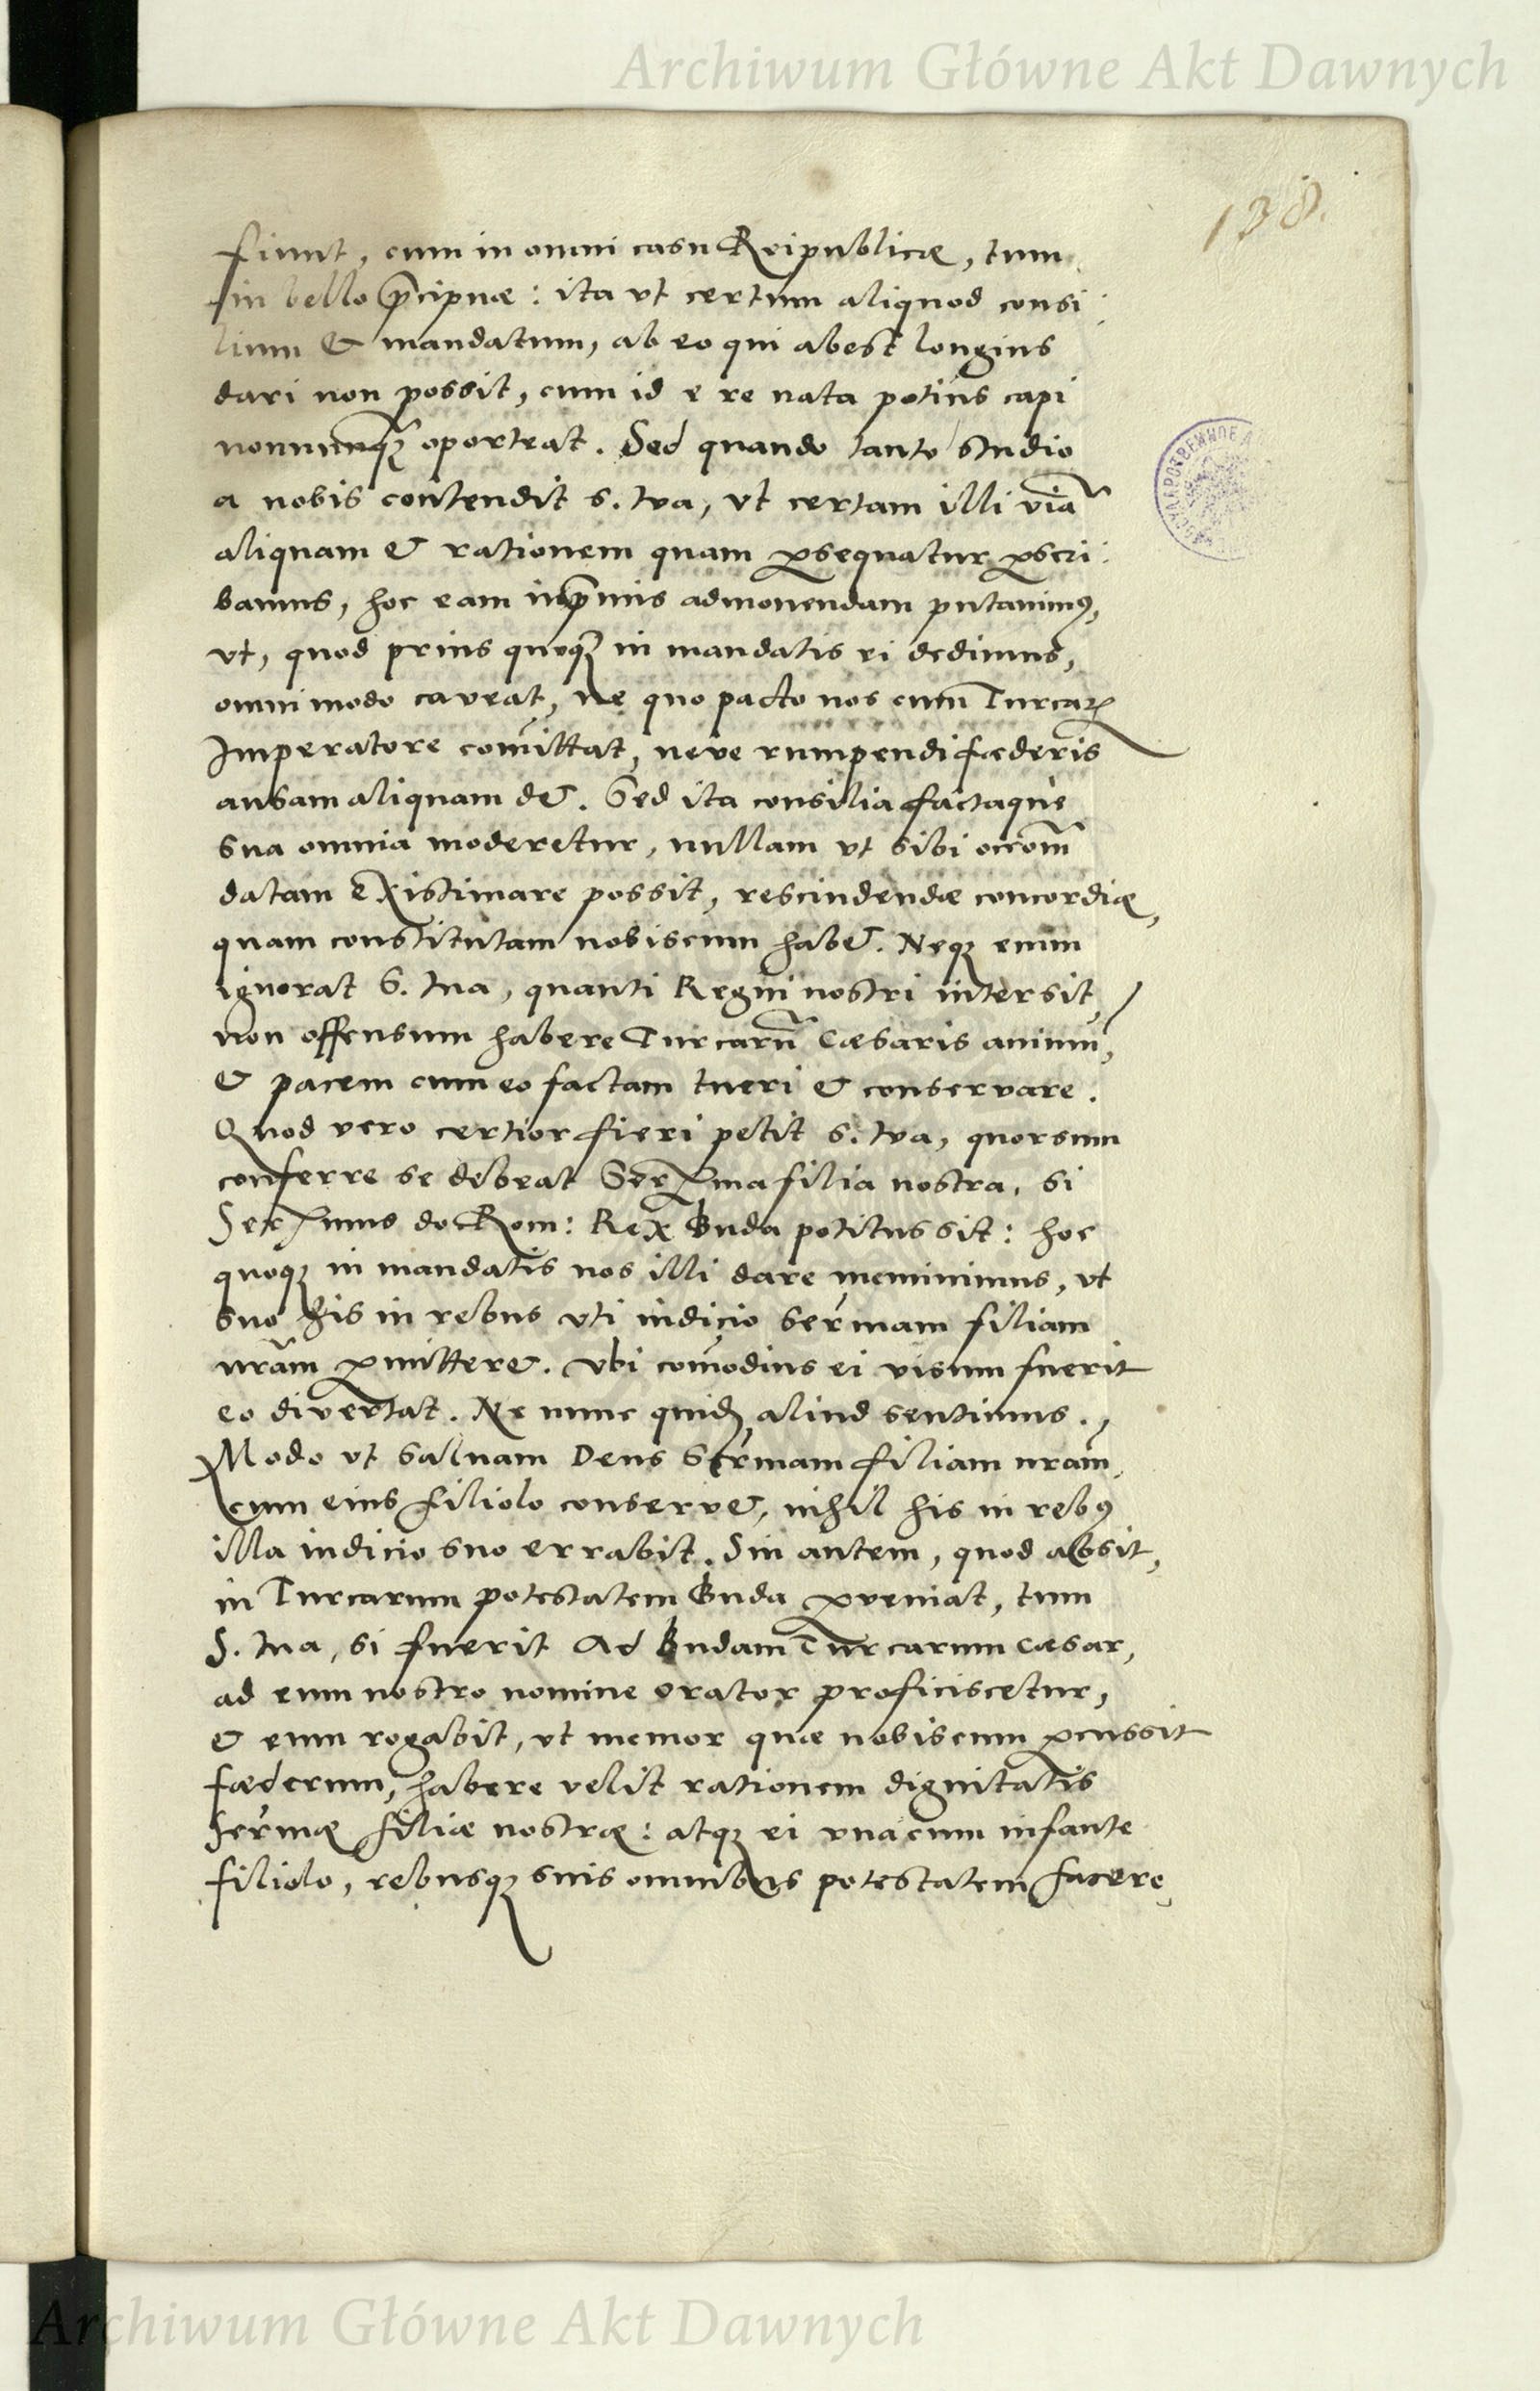 Archiwum Główne Akt Dawnych
138.
fiunt, cum in omni casu Reipublicæ, tum
in bello p̄cipuæ: ita vt certum aliquod consi
lium & mandatum, ab eo qui abest longius
dari non possit, cum id e re nata potius capi
nonnunq̃ oporteat. Sed quando tanto studio
a nobis contendit S. tva, vt certam illi viã
aliquam & rationem quam ꝑsequatur ꝑscri:
bamus, hoc eam inp̄mis admonendam putauimꝰ,
vt, quod prius quoqꝫ in mandatis ei dedimus,
omni modo caveat, ne quo pacto nos cum Turcaꝝ
Imperatore com̄ittat, neve rumpendi fœderis
ansam aliquam det. Sed ita consilia factaque
sua omnia moderetur, nullam vt sibi occom̃
datam existimare possit, rescindendæ concordiæ,
quam constitutam nobiscum habet. Neqꝫ enim
ignorat S. tua, quanti Regni nostri intersit,
non offensum habere Turcarũ Cæsaris animũ,
& pacem cum eo factam tueri & conservare.
Quod vero certior fieri petit S. tva, quorsum
conferre se debeat Serma filia nostra, si
Sermus do Rom: Rex Buda potitus sit: hoc
quoqꝫ in mandatis nos illi dare meminimus, vt
suo his in rebus vti iudicio Sermam filiam
nr̃am ꝑmitteret. Vbi com̄odius ei visum fuerit
eo divertat. Ne nunc quidẽ aliud sentimus.,
Modo vt saluam Deus Sermam filiam nr̃am,
cum eius filiolo conservet, nihil his in rebꝰ
illa iudicio suo errabit. Sin autem, quod absit,
in Turcarum potestatem Buda ꝑveniat, tum
S. tua, si fuerit ad Budam Turcarum Cæsar,
ad eum nostro nomine orator proficiscetur,
& eum rogabit, vt memor quæ nobiscum ꝑcussit
fœderum, habere velit rationem dignitatis
Sermæ filiæ nostræ: atqꝫ ei vna cum infante
filiolo, rebusqꝫ suis omnibus potestatem facere,
Archiwum Główne Akt Dawnych